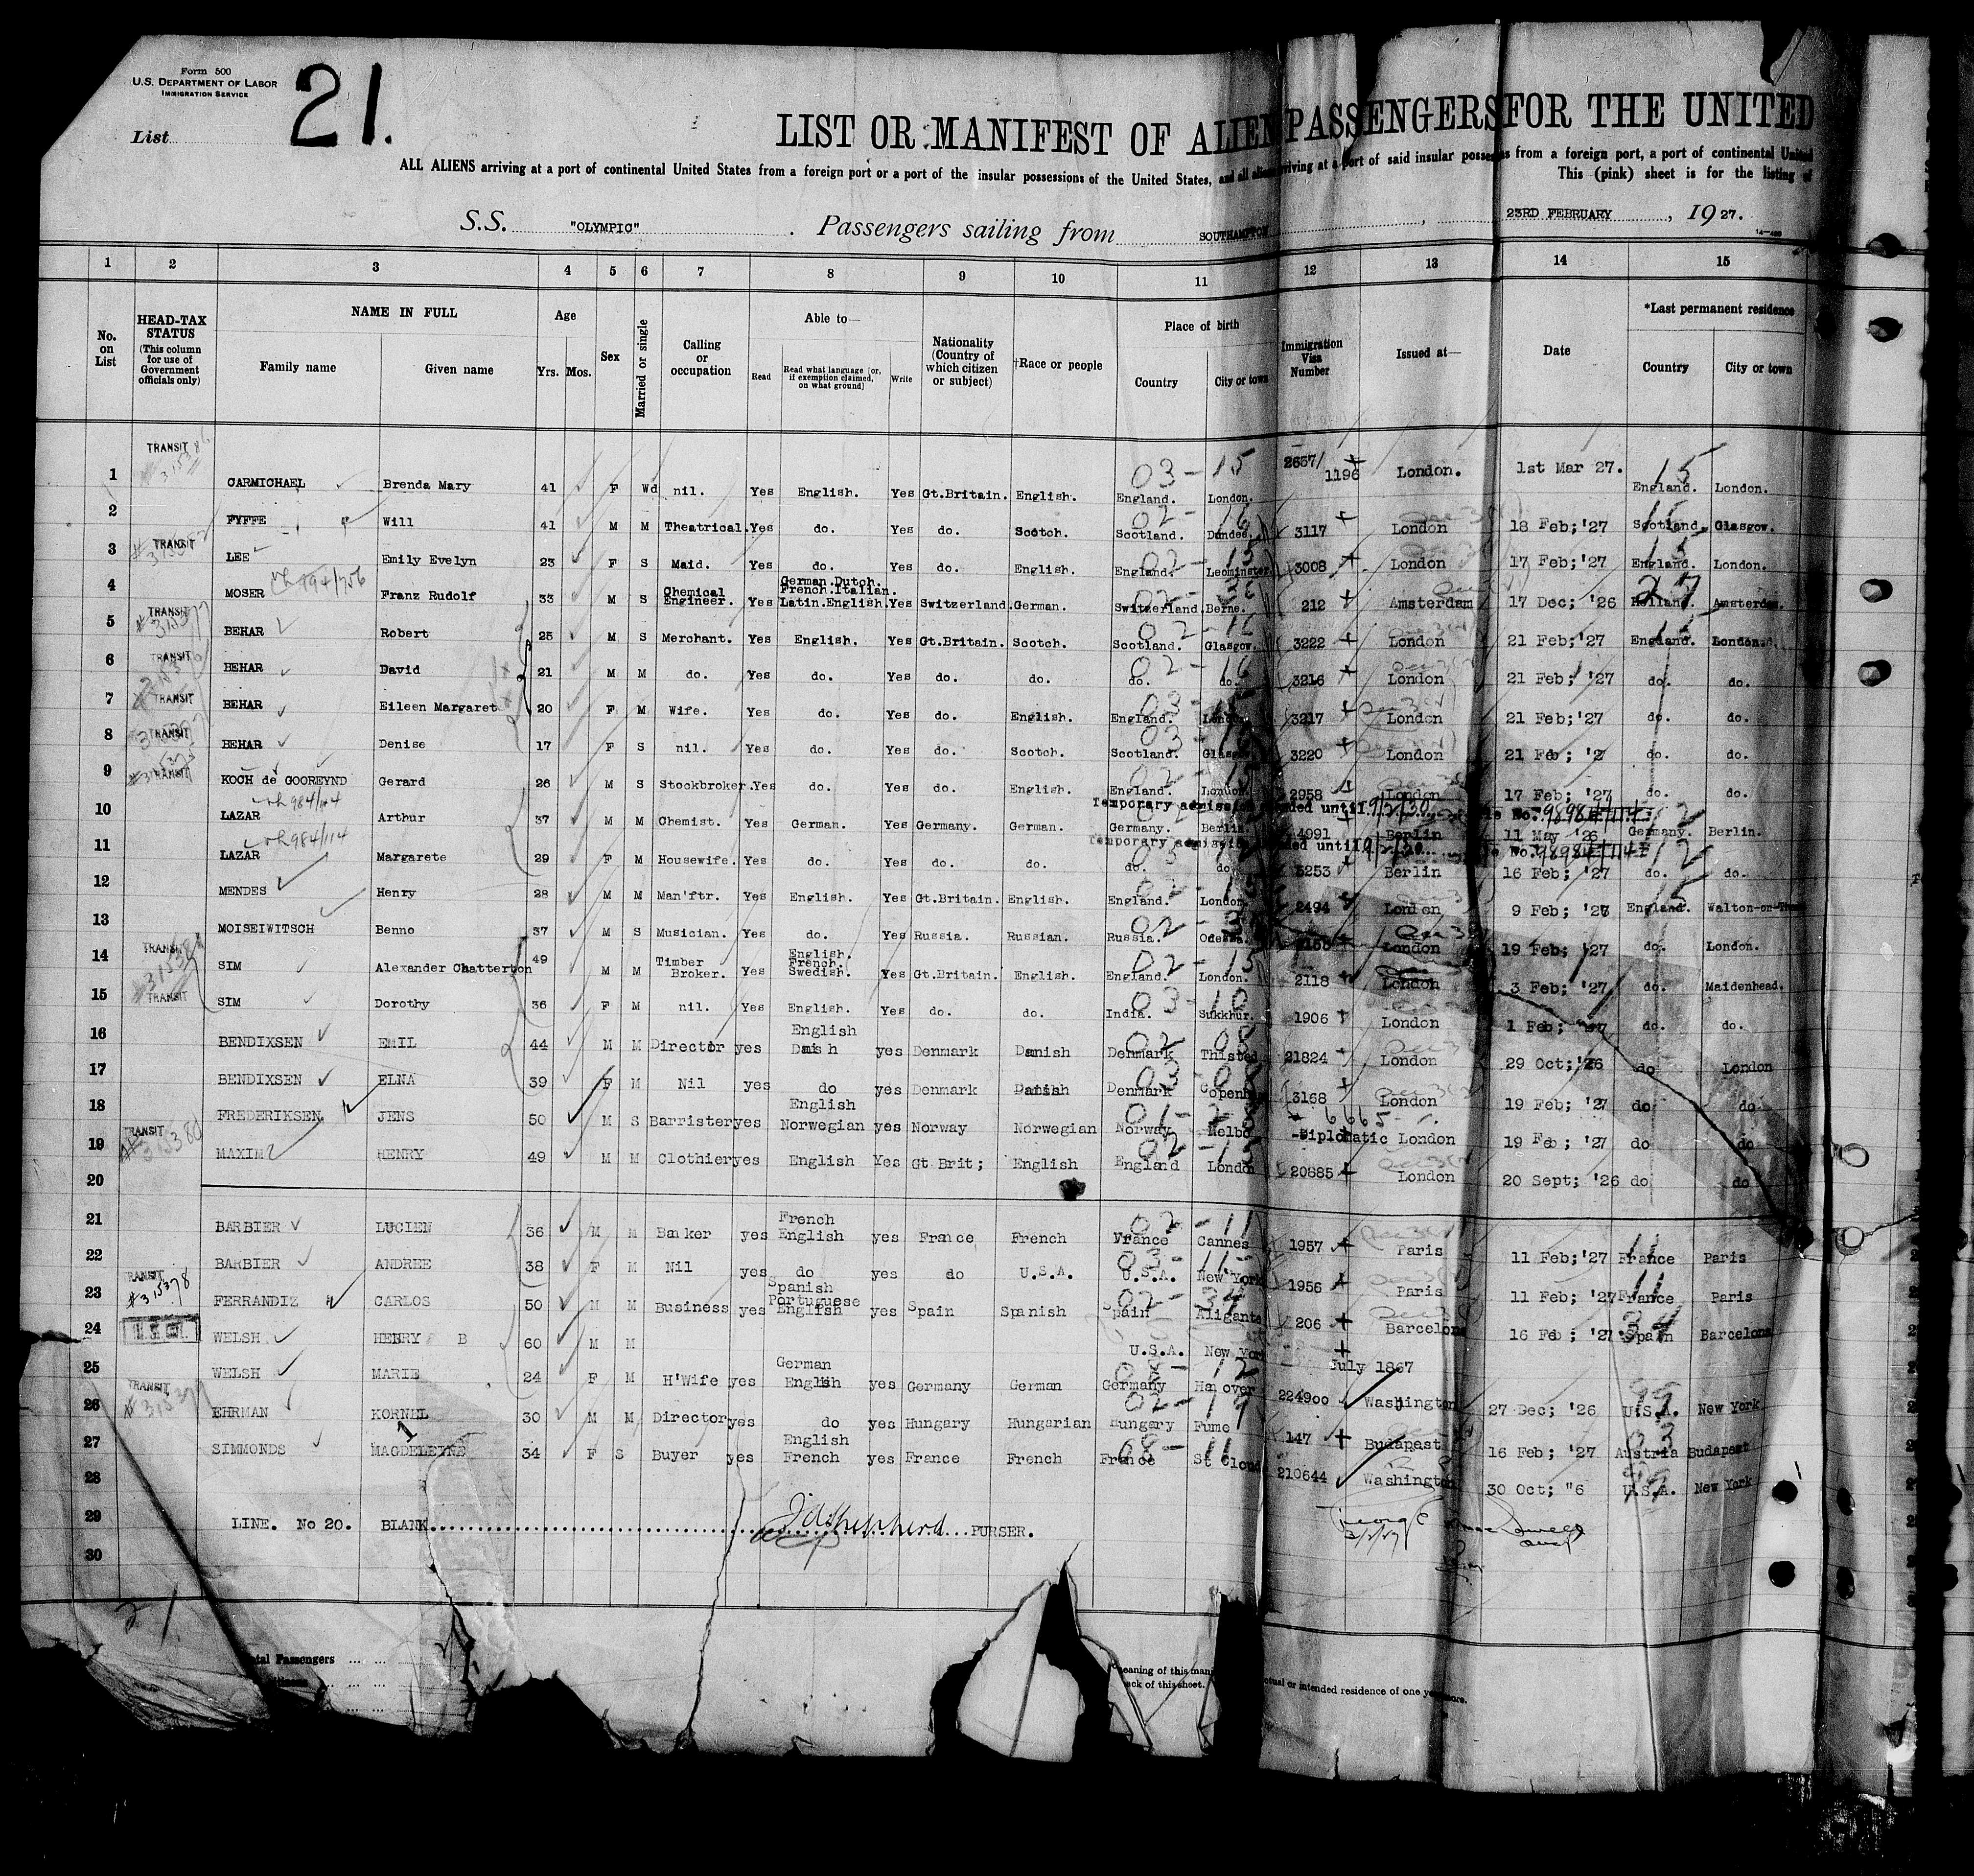 Form 500
U.S. DEPARTMENT OF LABOR
IMMIGRATION SERVICE
List 21.
LIST OR MANIFEST OF ALIEN PASSENGERS FOR THE UNITED
ALL ALIENS arriving at a port of continental United States from a foreign port or a port of the insular possessions of the United States, and all aliens arriving at a port of said insular possessions from a foreign port, a port of continental United
This (pink) sheet is for the listing of
S.S. "OLYMPIC" . Passengers sailing from SOUTHAMPTON , 23RD FEBRUARY , 19 27.
1 2 3 4 5 6 7 8 9 10 11 12 13 14 15
No. on List
HEAD-TAX STATUS (This column for use of Government officials only)
NAME IN FULL Family name Given name
Age Yrs. Mos.
Sex
Married or single
Calling or occupation
Able to— Read Read what language [or, if exemption claimed, on what ground] Write
Nationality (Country of which citizen or subject)
†Race or people
Place of birth Country City or town
Immigration Visa Number
Issued at—
Date
*Last permanent residence Country City or town
1 TRANSIT CARMICHAEL Brenda Mary 41 F Wd nil. Yes English. Yes Gt.Britain. English. 03-15 England. London. 2637/1196 London. 1st Mar 27. 15 England. London.
2 FYFFE Will 41 M M Theatrical. Yes do. Yes do. Scotch. 02-16 Scotland. Dundee. 3117 London 18 Feb;'27 Scotland. Glasgow.
3 TRANSIT LEE Emily Evelyn 23 F S Maid. Yes do. Yes do. English. 02-15 England. Leominster. 3008 London 17 Feb;'27 15 England. London.
4 MOSER Franz Rudolf 33 M S Chemical Engineer. Yes German.Dutch. French.Italian. Latin.English. Yes Switzerland. German. Switzerland. Berne. 212 Amsterdam 17 Dec; '26 27 Holland. Amsterdam.
5 TRANSIT BEHAR Robert 25 M S Merchant. Yes English. Yes Gt.Britain. Scotch. Scotland. Glasgow. 3222 London 21 Feb;'27 15 England. London.
6 TRANSIT BEHAR David 21 M M do. Yes do. Yes do. do. 02-16 do. do. 3216 London 21 Feb; '27 do. do.
7 TRANSIT BEHAR Eileen Margaret 20 F M Wife. Yes do. Yes do. English. England. London. 3217 London 21 Feb;'27 do. do.
8 TRANSIT BEHAR Denise 17 F S nil. Yes do. Yes do. Scotch. Scotland. Glasgow. 3220 London 21 Feb ; '2 do. do.
9 TRANSIT KOCH de GOOREYND Gerard 26 M S Stockbroker. Yes do. Yes do. English. 02-15 England. London. 2958 London 17 Feb; '27 do. do.
Temporary admission until 9/2/30 No. 98984/114
10 984/114 LAZAR Arthur 37 M M Chemist. Yes German. Yes Germany. German. Germany. Berlin. 4991 Berlin 11 May '26 12 Germany. Berlin.
Temporary admission until 9/2/30 No. 98984/114
11 984/114 LAZAR Margarete 29 F M Housewife. Yes do. Yes do. do. do. do. 3253 Berlin 16 Feb; '27 12 do. do.
12 MENDES Henry 28 M M Man'ftr. Yes English. Yes Gt.Britain. English. 02-15 England. London. 2494 London 9 Feb; '27 15 England. Walton-on-Thames
13 MOISEIWITSCH Benno 37 M S Musician. Yes do. Yes Russia. Russian. Russia. Odessa. London 19 Feb; '27 do. London.
14 TRANSIT SIM Alexander Chatterton 49 M M Timber Broker. Yes English. French. Swedish. Yes Gt.Britain. English. 02-15 England. London. 2118 London 3 Feb; '27 do. Maidenhead.
15 TRANSIT SIM Dorothy 36 F M nil. Yes English. Yes do. do. 03-10 India. Sukkhur. 1906 London 1 Feb; '27 do. do.
16 BENDIXSEN EMIL 44 M M Director yes English Danish yes Denmark Danish 02 08 Denmark Thisted 21824 London 29 Oct;'26 do London
17 BENDIXSEN ELNA 39 F M Nil yes do yes Denmark Danish 03-08 Denmark Copenh 3168 London 19 Feb; '27 do do
18 FREDERIKSEN JENS 50 M S Barrister yes English Norwegian yes Norway Norwegian Norway Melbo 6665 -Diplomatic London 19 Feb ; '27 do do
19 TRANSIT 315380 MAXIM HENRY 49 M M Clothier yes English Yes Gt Brit; English England London 20885 London 20 Sept; '26 do do
20
21 BARBIER LUCIEN 36 M M Banker yes French English yes France French 02-11 France Cannes 1957 Paris 11 Feb;'27 11 France Paris
22 BARBIER ANDREE 38 F M Nil yes do yes do U.S.A. 03-11 U.S.A. New York 1956 Paris 11 Feb; '27 11 France Paris
23 TRANSIT #315378 FERRANDIZ CARLOS 50 M M Business yes Spanish Portuguese English yes Spain Spanish 02-34 Spain Aligante 206 Barcelona 16 Feb ; '27 34 Spain Barcelona
24 WELSH HENRY B 60 M M U.S.A. New York July 1867
25 WELSH MARIE 24 F M H'Wife yes German English yes Germany German 08-12 Germany Hanover 224900 Washington 27 Dec; '26 99 U.S.A. New York
26 TRANSIT EHRMAN KORNEL 30 M M Director yes do yes Hungary Hungarian 02-19 Hungary Fume 147 Budapest 16 Feb; '27 03 Austria Budapest
27 SIMMONDS MAGDELEINE 34 F S Buyer yes English French yes France French 08-11 France St Cloud 210644 Washington 30 Oct; "6 99 U.S.A. New York
28
29 LINE. No 20. BLANK J d Shepherd PURSER.
30
21.
Total Passengers ... ...
meaning of this mani
ack of this sheet.
actual or intended residence of one year or more.